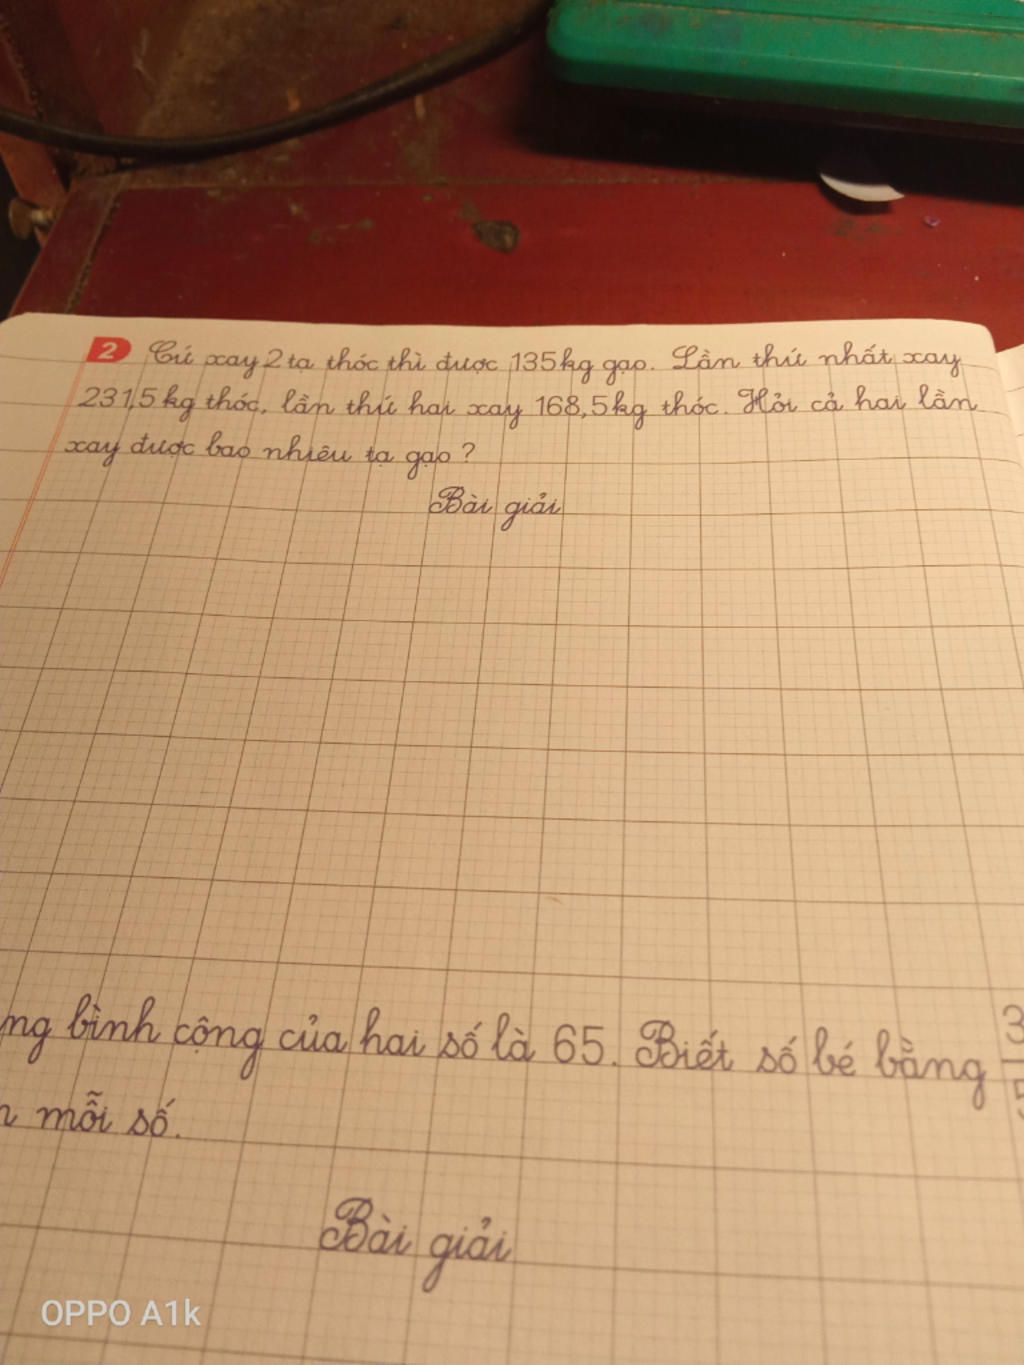 2 Cứ xay 2 tạ thóc thì được 135kg gạo. Lần thứ nhất xay
231,5kg thóc, lần thứ hai xay 168,5kg thóc. Hỏi cả hai lần
xay được bao nhiêu tạ gạo?
Bài giải
ng bình cộng của hai số là 65. Biết số bé bằng 3/5
mỗi số.
Bài giải
OPPO A1k